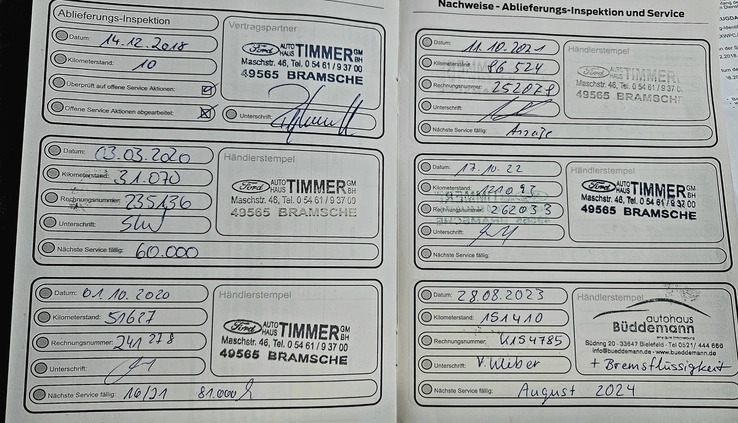 Ablieferungs-Inspektion
Datum: 14.12.2018
Kilometerstand: 10
Überprüft auf offene Service Aktionen:
Offene Service Aktionen abgearbeitet:
Vertragspartner
Ford AUTOHAUS TIMMER GMBH
Maschstr. 46, Tel. 0 54 61 / 9 37 00
49565 BRAMSCHE
Unterschrift:
Datum: 03.03.2020
Kilometerstand: 31.070
Rechnungsnummer: 235136
Unterschrift:
Nächste Service fällig: 60.000
Händlerstempel
Ford AUTOHAUS TIMMER GMBH
Maschstr. 46, Tel. 0 54 61 / 9 37 00
49565 BRAMSCHE
Datum: 01.10.2020
Kilometerstand: 51627
Rechnungsnummer: 241278
Unterschrift:
Nächste Service fällig: 10/21 81.000
Händlerstempel
Ford AUTOHAUS TIMMER GMBH
Maschstr. 46, Tel. 0 54 61 / 9 37 00
49565 BRAMSCHE
Nachweise - Ablieferungs-Inspektion und Service
Datum: 11.10.2021
Kilometerstand: 86524
Rechnungsnummer: 252078
Unterschrift:
Nächste Service fällig: Anzeige
Händlerstempel
Ford AUTOHAUS TIMMER GMBH
Maschstr. 46, Tel. 0 54 61 / 9 37 00
49565 BRAMSCHE
Datum: 17.10.22
Kilometerstand:
Rechnungsnummer: 262033
Unterschrift:
Nächste Service fällig:
Händlerstempel
Ford AUTOHAUS TIMMER GMBH
Maschstr. 46, Tel. 0 54 61 / 9 37 00
49565 BRAMSCHE
Datum: 28.08.2023
Kilometerstand: 151410
Rechnungsnummer: W154785
Unterschrift: V. Weber
Nächste Service fällig: August 2024
Händlerstempel
autohaus
Büddemann
Südring 20 - 33647 Bielefeld - Tel 0521/ 444 666
info@bueddemann.de - www.bueddemann.de
+ Bremsflüssigkeit